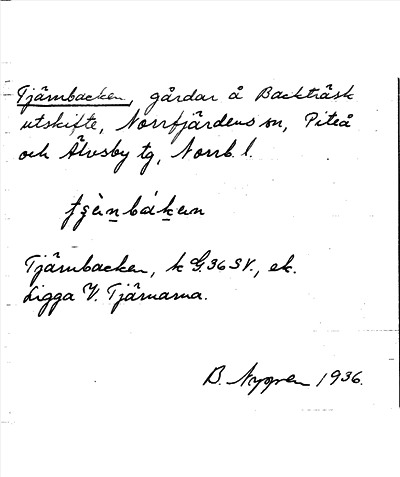 Tjärnbacken, gårdar å Backträsk
utskifte, Norrfjärdens sn, Piteå
och Älvsby tg, Norrb. l.
Tjärnbacken, k G. 36 SV., ek.
Ligga V. Tjärnarna.
B. Nygren 1936.